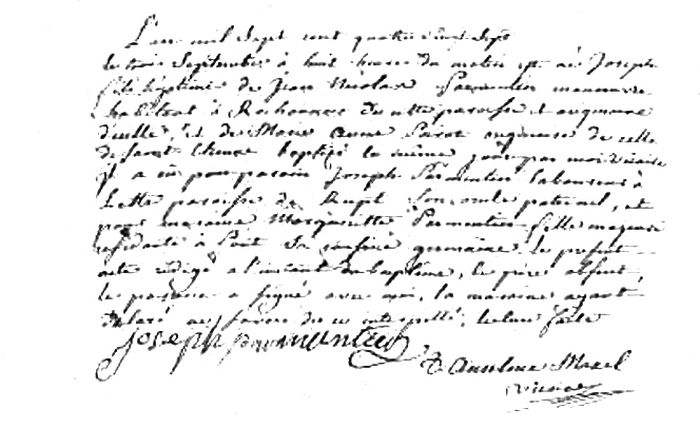 L'an mil sept cent quatre vingt sept
le trois Septembre à huit heures du matin est né Joseph
fils légitime de Jean Nicolas Parmentier manoeuvre
habitant à de cette paroisse et originaire
d'icelle, et de Marie Anne originaire de celle
de Saint baptisé le même jour par moi vicaire
il a eu pour parain Joseph Parmentier laboureur à
cette paroisse de Rupt son oncle paternel, et
pour maraine Margueritte Parmentier fille majeure
résidante à Sa cousine germaine, le présent
acte rédigé à l'instant du baptême, le père absent,
le parain a signé avec moi, la maraine ayant
déclaré ne savoir de ce interpellé, lecture faite
joseph parmentier
Marel
vicaire